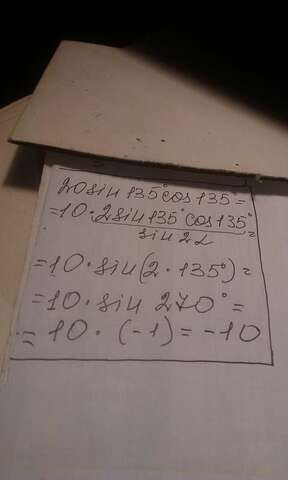 20sin135°cos135°=
=10·2sin135°cos135°=
sin2α
=10·sin(2·135°)=
=10·sin270°=
=10·(-1)=-10